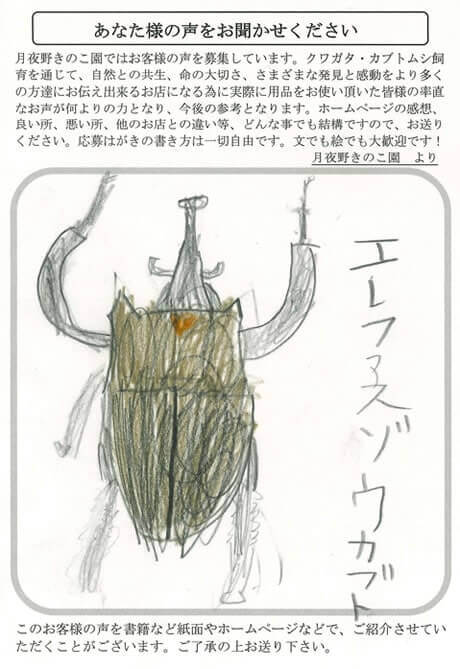 あなた様の声をお聞かせください
月夜野きのこ園ではお客様の声を募集しています。クワガタ・カブトムシ飼
育を通じて、自然との共生、命の大切さ、さまざまな発見と感動をより多く
の方達にお伝え出来るお店になる為に実際に用品をお使い頂いた皆様の率直
なお声が何よりの力となり、今後の参考となります。ホームページの感想、
良い所、悪い所、他のお店との違い等、どんな事でも結構ですので、お送り
ください。応募はがきの書き方は一切自由です。文でも絵でも大歓迎です！
月夜野きのこ園　より
エレファスゾウカブト
このお客様の声を書籍など紙面やホームページなどで、ご紹介させていた
だくことがございます。ご了承の上お送り下さい。